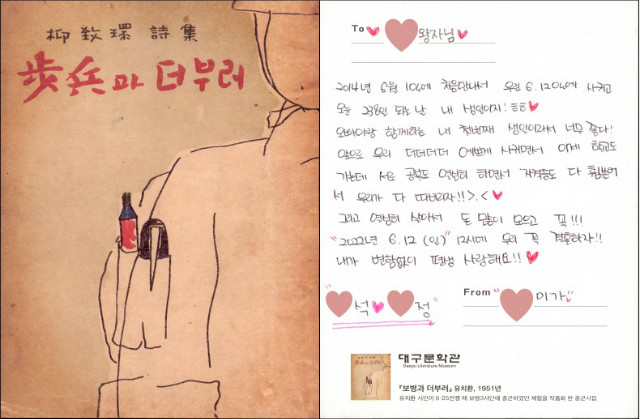 柳致環 詩集
步兵과 더부러
To ♥ 왕자님♥
2014년 6월 10일에 처음만나서 우린 6.12일에 사귀고
오늘 238일 되는 날 내 생일이지! ㅎㅎ♥
오빠야랑 함께하는 내 첫번째 생일이라서 너무 좋다!
앞으로 우리 더더더더 예쁘게 사귀면서 이제 학교도
가는데 서로 공부도 열심히 하면서 자격증도 다 휩쓸어
서 우리가 다 따버리자!! >.< ♥
그리고 열심히 살아서 돈 많이 모으고 꼭!!!
"2022년 6.12 (일)" 12시에 우리 꼭 결혼하자!!
내가 변함없이 평생 사랑해요!! ♥
"♥석♥♥정"
From ♥미가
대구문학관
Daegu Literature Museum
步兵과 더부러
『보병과 더부러』 유치환, 1951년
유치환 시인이 6·25전쟁 때 보병3사단에 종군하였던 체험을 작품화 한 종군시집